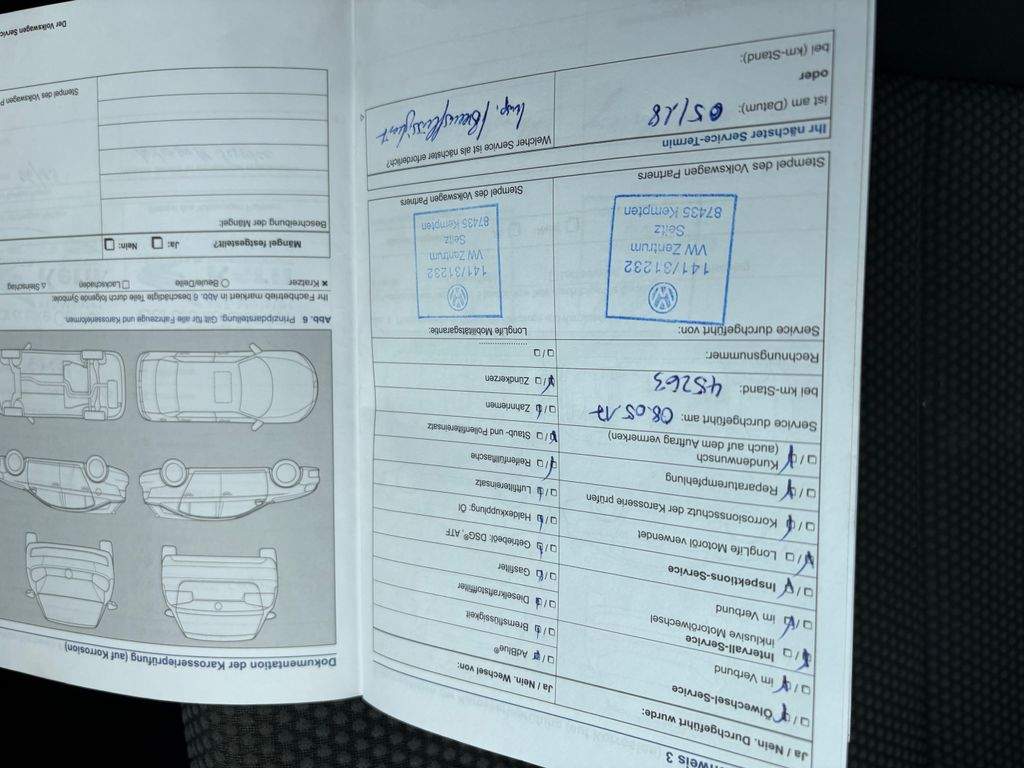 nweis 3
Ja / Nein. Durchgeführt wurde:
Ölwechsel-Service
im Verbund
Intervall-Service
inklusive Motorölwechsel
im Verbund
Inspektions-Service
LongLife Motoröl verwendet
Korrosionsschutz der Karosserie prüfen
Reparaturempfehlung
Kundenwunsch
(auch auf dem Auftrag vermerken)
Service durchgeführt am: 08.05.17
bei km-Stand: 45263
Rechnungsnummer:
Service durchgeführt von:
141/31232
VW Zentrum
Seitz
87435 Kempten
Stempel des Volkswagen Partners
Ja / Nein. Wechsel von:
AdBlue®
Bremsflüssigkeit
Dieselkraftstofffilter
Gasfilter
Getriebeöl: DSG®, ATF
Haldexkupplung: Öl
Luftfiltereinsatz
Reifenfüllflasche
Staub- und Pollenfiltereinsatz
Zahnriemen
Zündkerzen
LongLife Mobilitätsgarantie:
141/31232
VW Zentrum
Seitz
87435 Kempten
Stempel des Volkswagen Partners
Ihr nächster Service-Termin
ist am (Datum): 05/18
oder
bei (km-Stand):
Welcher Service ist als nächster erforderlich?
Insp. / Bremsflüssigkeit
Dokumentation der Karosserieprüfung (auf Korrosion)
Abb. 6 Prinzipdarstellung: Gilt für alle Fahrzeuge und Karosserieformen.
Ihr Fachbetrieb markiert in Abb. 6 beschädigte Teile durch folgende Symbole:
× Kratzer ○ Beule/Delle □ Lackschaden △ Steinschlag
Mängel festgestellt? Ja: Nein:
Beschreibung der Mängel:
Stempel des Volkswagen P
Der Volkswagen Service